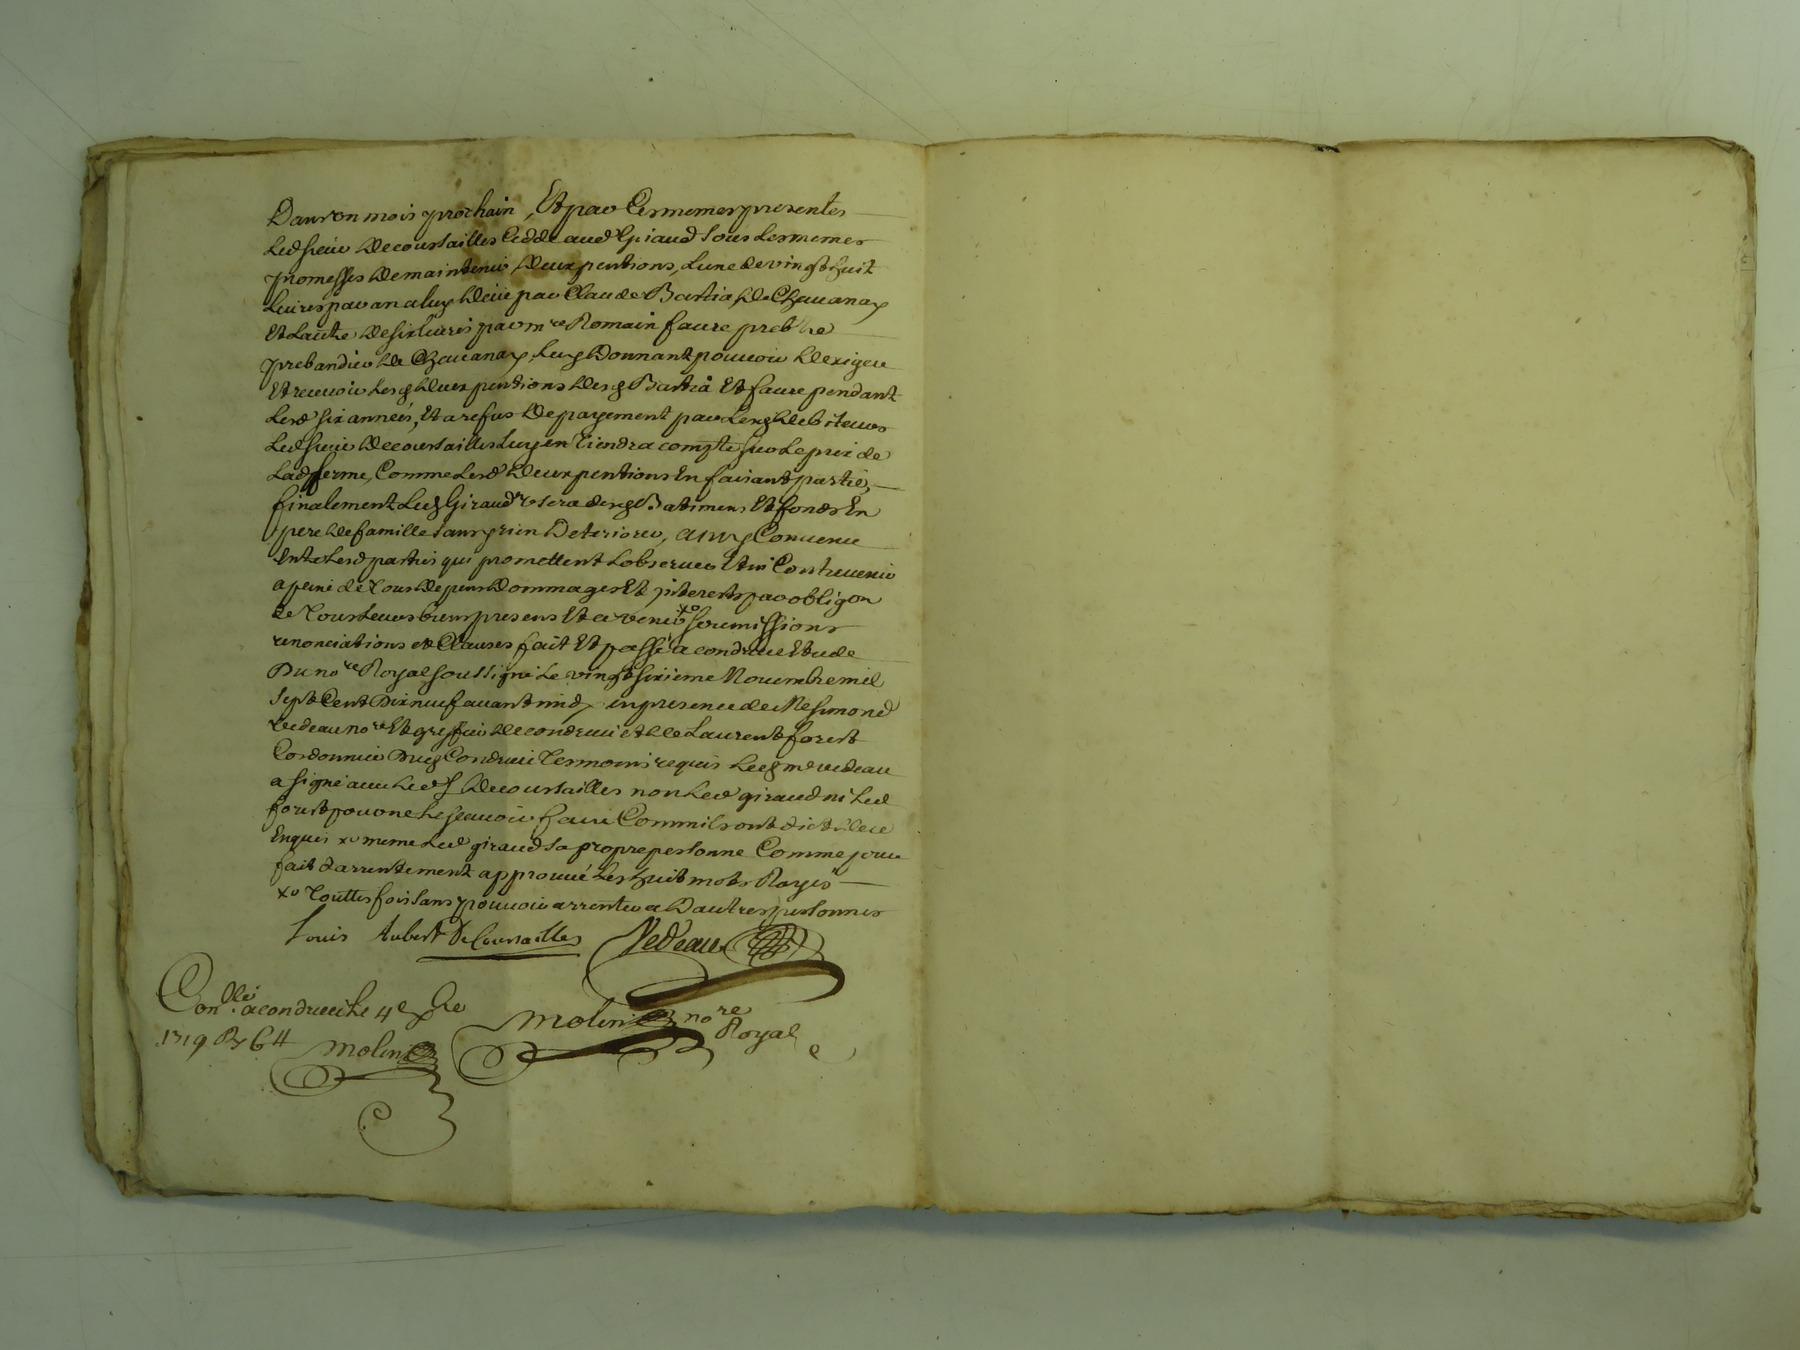 Dans un mois prochain, Et par Ces memes presentes
Led sieur De coursailles Cedde aud Giraud sous Les memes
promesses De maintenir Deux pentions, Lune de vingt huit
Livres par an a luy Deüe par Claude Bartia De Chauanay
Et Lautre De six Livres par mre Romain faure prebtre
prebandier De Chauanay, Luy Donnant pouuoir Dexiger
Et receuoir Lesd Deux pentions Desd Bartia Et faure pendant
Lesd six années, Et a refus De payement par Lesd Debiteurs
Led sieur De coursailles Luy en Tiendra compte sur Le prix de
Lad ferme, Comme Lesd Deux pentions En faisant partie,
finalement Led Giraud Vsera desd Batimens Et fonds En
pere De famille sans y rien Deteriorer, ainsy Conuenu
Entre Lesd parties qui promettent Lobseruer Et ni Contreuenir
a peine de Tous Depens Dommages Et jnterests par obligon
de Tous Leurs biens presens Et a venir xo soumissions
renonciations et Clauses fait Et passé a condrieu Etude
Du nore Royal soussigné Le vingt sixieme Nouembre mil
sept Cent Dix neuf auant midy en presence de Me simond
Vedeau nore Et greffier De condrieu et de Laurent forest
Cordonnier Dud Condrieu Temoins requis Led me vedeau
a signé auec Led s De coursailles non Led giraud ni Led
forest pour ne Le sçauoir faire Comm ils ont dict De ce
Enquis xo meme Led giraud sa propre personne Comme pour
fait darrentement approuué Les huit mots Rayés
xo Touttes fois sans pouuoir arrenter a Dautres personnes
Louis Aubert De Coursailles Vedeau
Conollé a condrieu Le 4e xbre
1719 R 64
Molin
Molin nore
Royal